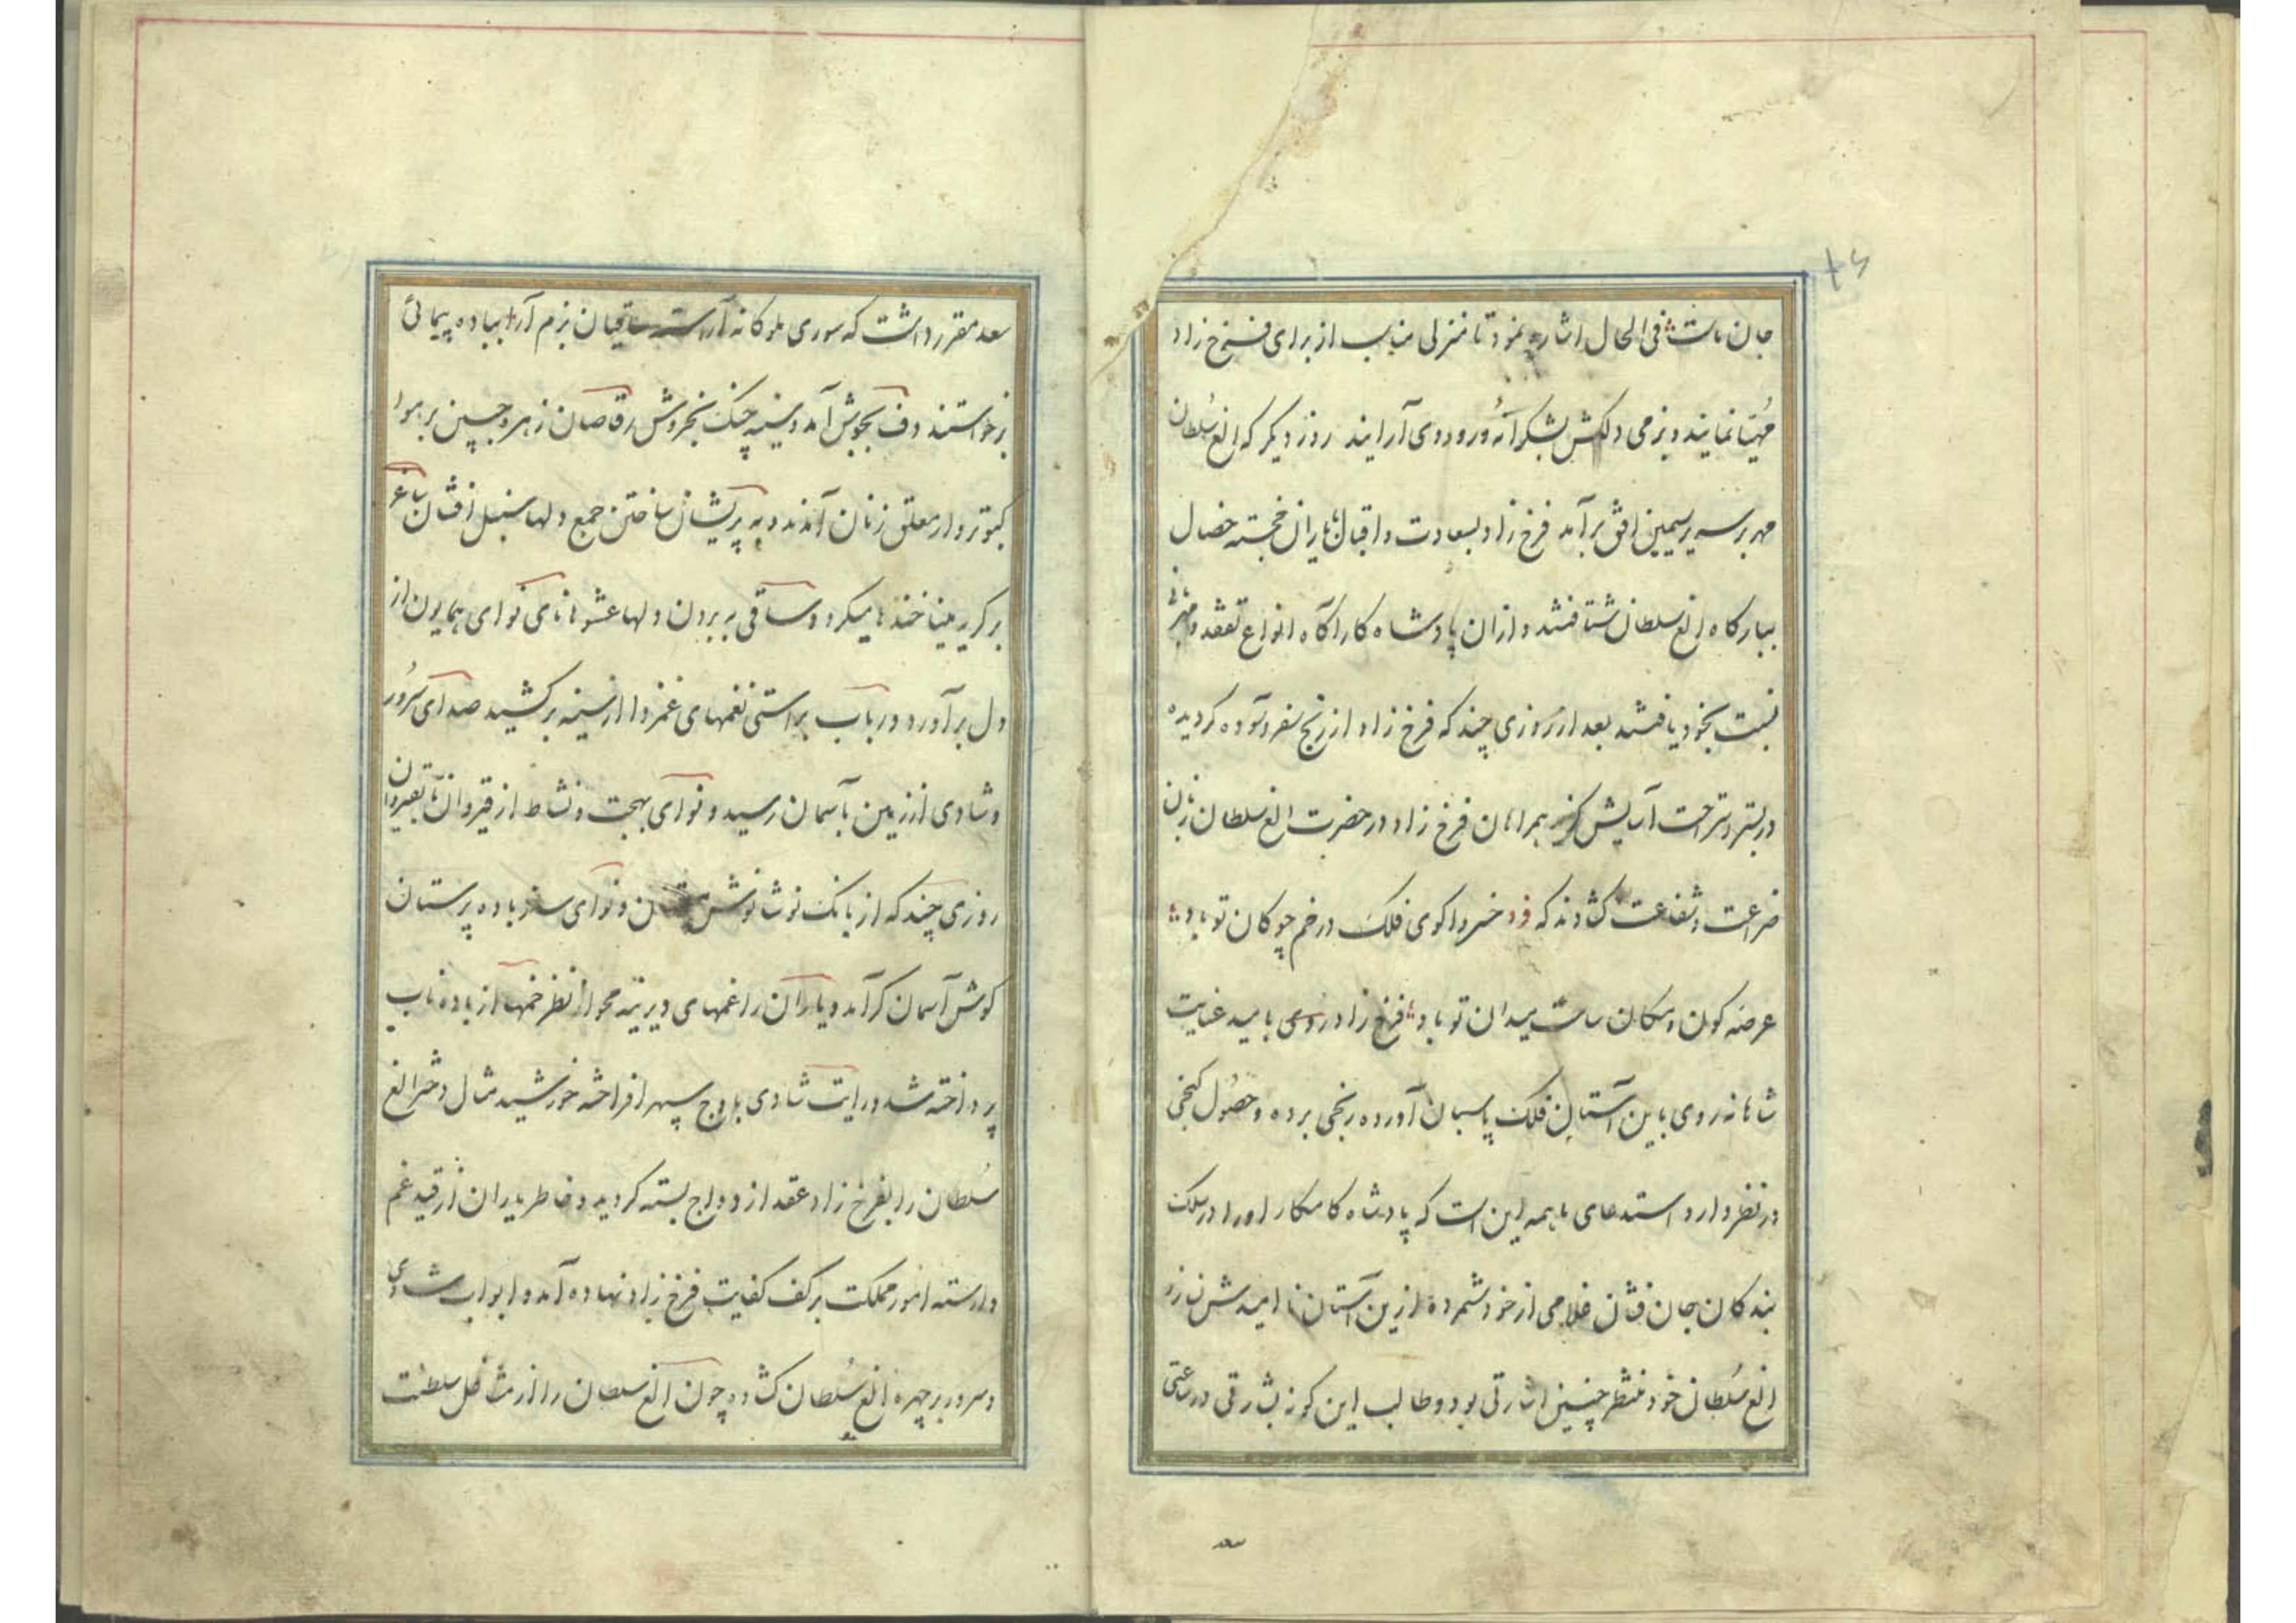 ۴۶
جان ماست فی الحال اشاره نمود تا منزلی مناسب از برای فرخ زاد
مُهیّا نمایند و بزمی دلکش بشکرانهٔ ورود وی آرایند روز دیگر که الغ سُلطان
مهر بر سریر سیمین افق برآمد فرخ زاد بسعادت و اقبال با یاران خجسته خصال
ببارکاه الغ سلطان شتافتند و ازان پادشاه کارآکاه انواع تفقد و مهربانی
نسبت بخود یافتند بعد از روزی چند که فرخ زاد از رنج سفر آسوده کردیده
در بستر استراحت آسایش کزید همراهان فرخ زاد در حضرت الغ سلطان زبان
ضراعت و شفاعت کشادند که فرد خسروا کوی فلک در خم چوکان تو باد
عرصه کون و مکان ساحت میدان تو باد فرخ زاد از روی بامید عنایت
شاهانه روی باین آستان فلک پاسبان آورده رنجی برده و حصُول کنجی
در نظر دارد استدعای ما همه این است که پادشاه کامکار او را در سلک
بندکان جان فشان غلامی از خود شمرده ازین آستان نا امیدش نسازد
الغ سُلطان خود منتظر چنین اشارتی بود و طالب این کونه بشارتی در ساعتی
سعد
سعد مقرر داشت که سوری ملوکانه آراسته ساقیان بزم آرا بباده پیمائی
برخواستند دف بجوش آمد و سینه چنک بخروش رقاصان زهره جبین بر هوا
کبوتر وار معلق زنان آمدند و به پریشان ساختن جمع دلها سنبل افشان ساغر
بر کریه مینا خنده ها میکرد و ساقی به بردن دلها عشوها نای نوای همایون از
دل برآورد و رباب براستی نغمهای غمزدا از سینه برکشید صدای سُرور
و شادی از زمین بآسمان رسید و نوای بهجت و نشاط از قیروان تا بقیروان
روزی چند که از بانک نوشانوش مستان و نوای ساغر باده پرستان
کوش آسمان کر آمد و یاران را غمهای دیرینه محو از نظر خمها از باده ناب
پرداخته شد و رایت شادی باوج سپهر افراخته خورشید مثال دختر الغ
سُلطان را بفرخ زاد عقد ازدواج بسته کردید و خاطر یاران از قید غم
وارسته امور مملکت بر کف کفایت فرخ زاد نهاده آمد و ابواب شادی
و سرور بر چهره الغ سُلطان کشاده چون الغ سلطان را از مشاغل سلطنت